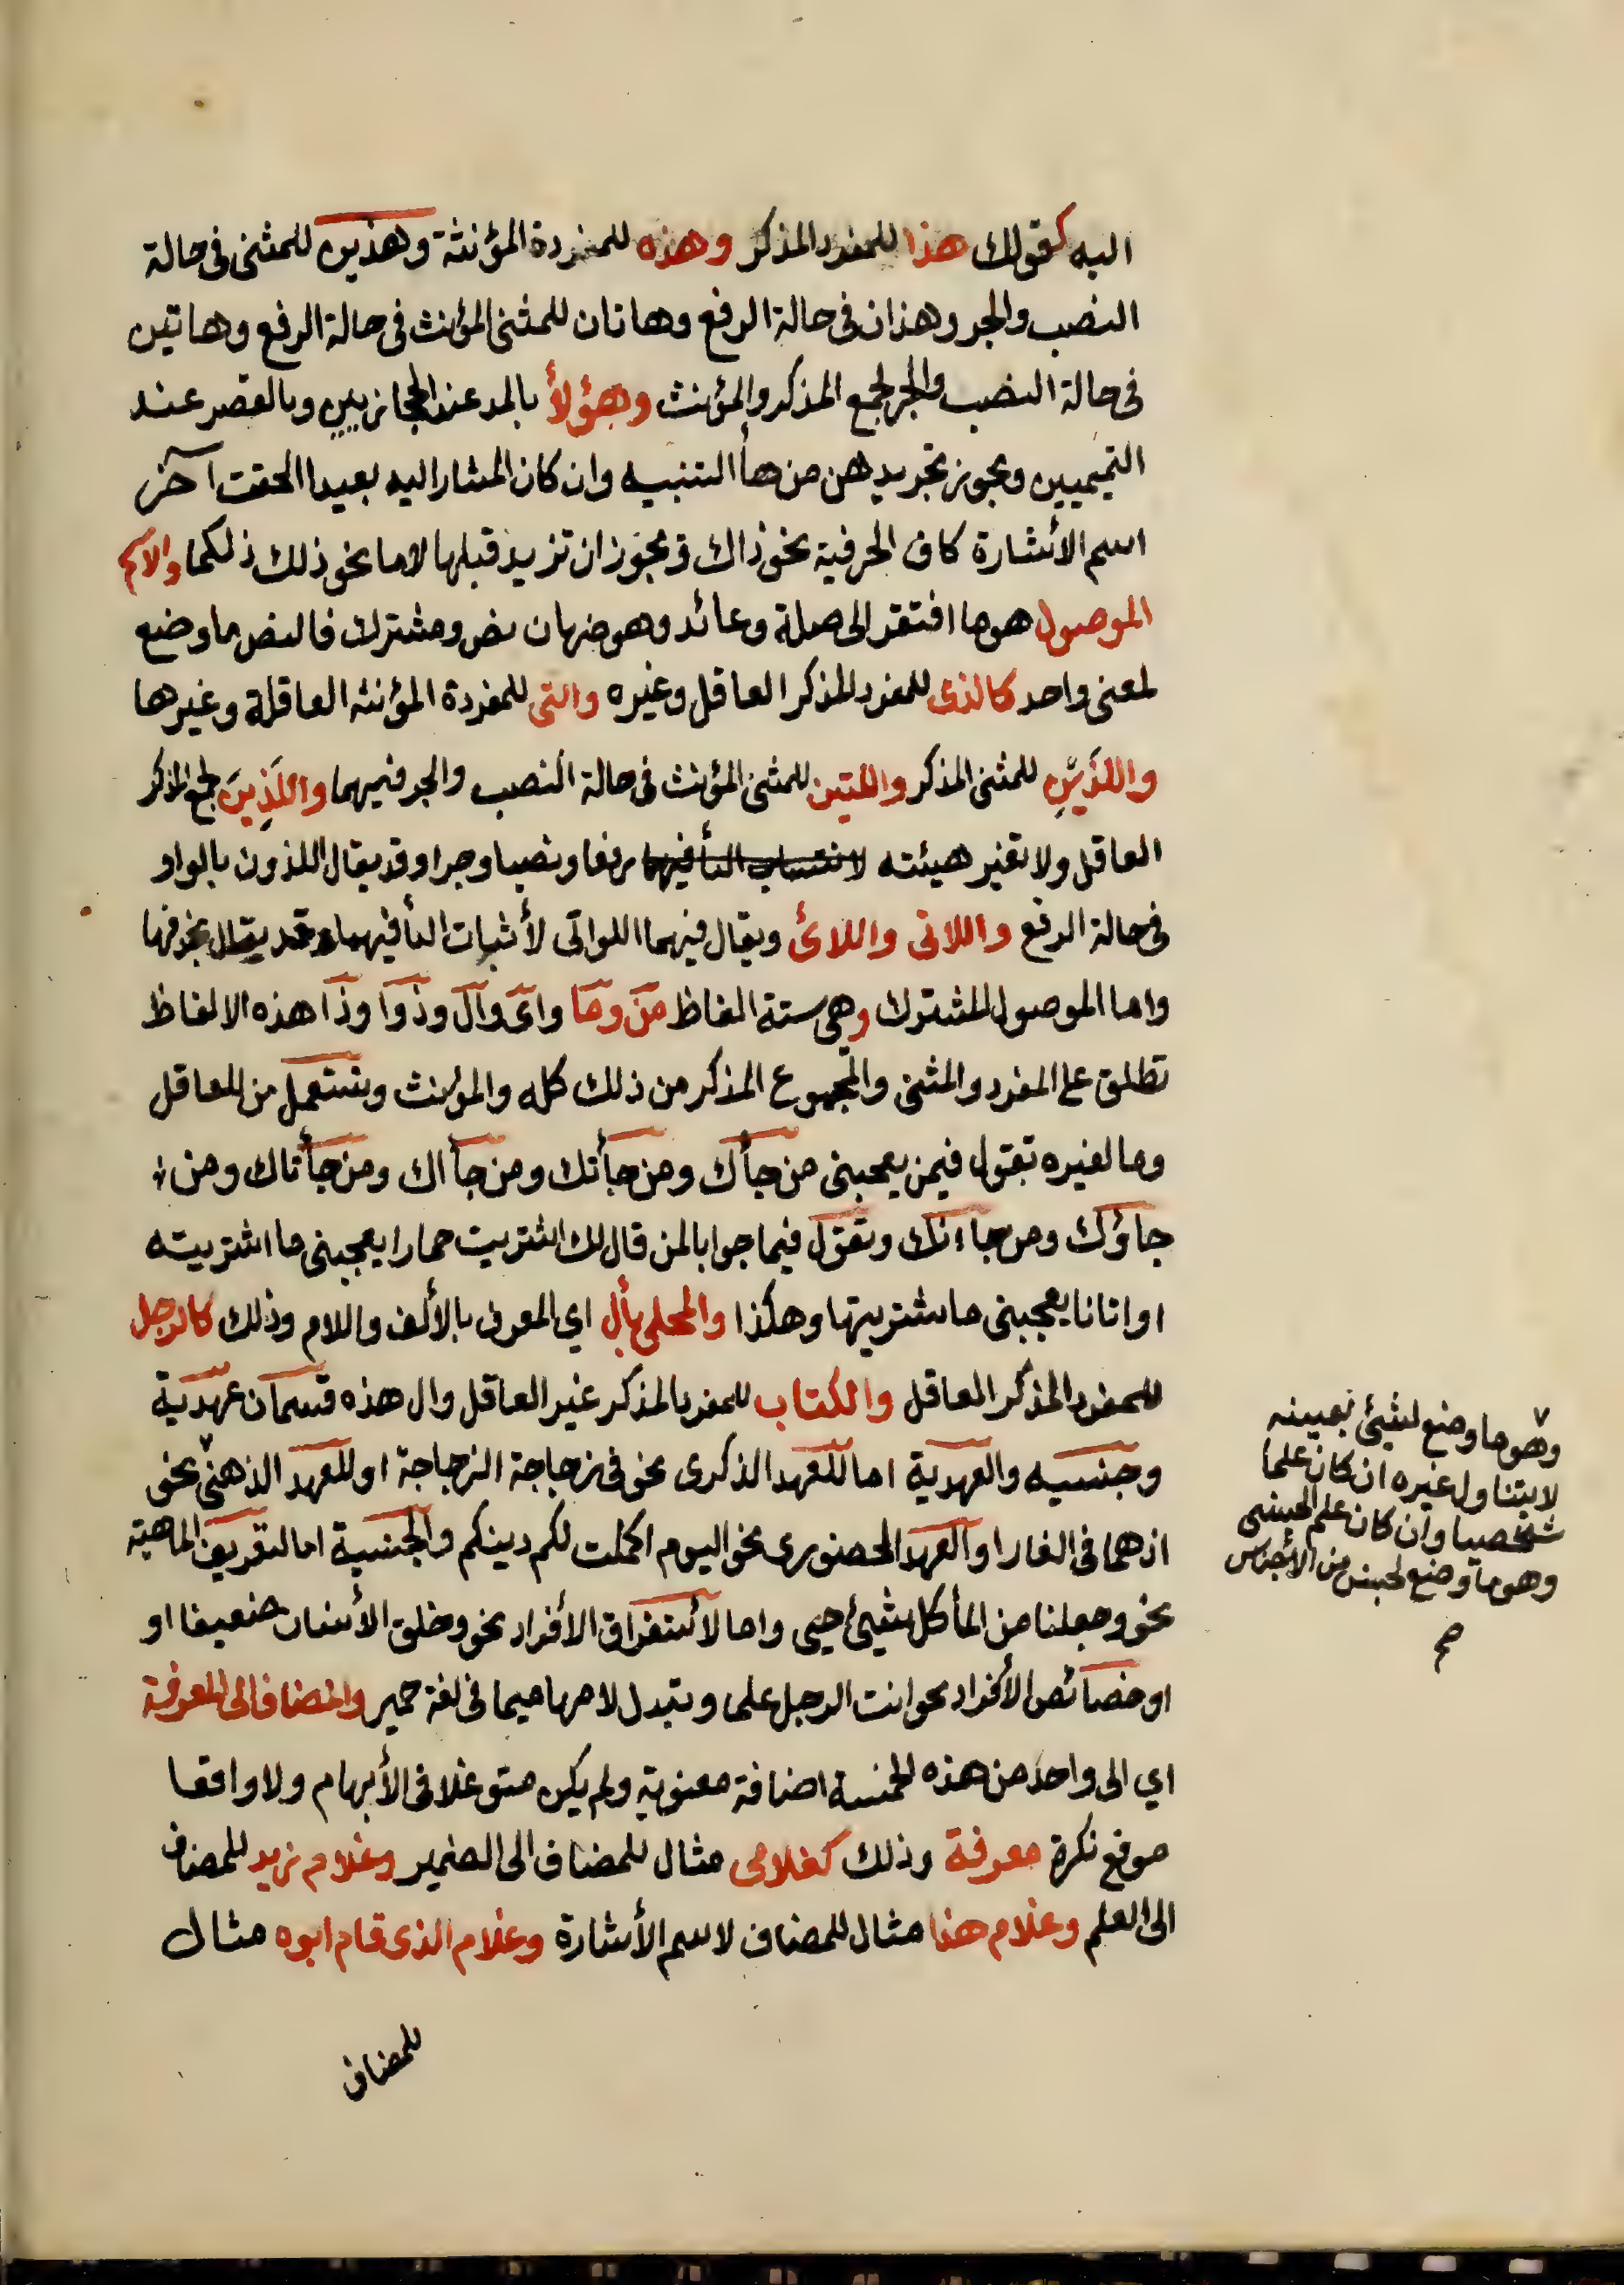 اليه كقولك هذا للمفرد المذكر وهذه للمفردة المؤنثة وهذين للمثنى في حالة
النصب والجر وهذان في حالة الرفع وهاتان للمثنى المؤنث في حالة الرفع وهاتين
في حالة النصب والجر لجمع المذكر والمؤنث وهؤلأ بالمد عند الحجازيين وبالقصر عند
التميميين ويجوز تجريدهن من هأ التنبيه وان كان المشار اليه بعيدا الحقت آخر
اسم الأشارة كاف الحرفية نحو ذاك ويجوز ان تزيد قبلها لاما نحو ذلك ذلكما والاسم
الموصول هو ما افتقر الى صلة وعائد وهو ضربان نص ومشترك فالنص ما وضع
لمعنى واحد كالذى للمفرد المذكر العاقل وغيره والتى للمفردة المؤنثه العاقلة وغيرها
واللذَيْنِ للمثنى المذكر واللتين للمثنى المؤنث في حالة النصب والجر فيهما والَّذِينَ لجمع المذكر
العاقل ولا تغير هيئته رفعا ونصبا وجرا وقد يقال اللذون بالواو
في حالة الرفع واللاتى واللائ ويقال فيهما اللواتى لأثبات اليأ فيهما وقد يقال بحذفها
واما الموصول المشترك وهي ستة الفاظ مَن ومَا واى وال وذوا وذا هذه الالفاظ
تطلق على المفرد والمثنى والمجموع المذكر من ذلك كله والمؤنث ويستعمل من للعاقل
وما لغيره تقول فيمن يعجبنى من جأك ومن جأتك ومن جأ اك ومن جأتاك ومن
جاؤك ومن جاءنك وتقول فيما جوابا لمن قال لك اشتريت حمارا يعجبنى ما اشتريته
او اتانا يعجبنى ما شتريتها وهكذا والمحلى بأل اي المعرف بالألف واللام وذلك كالرجل
للمفرد المذكر العاقل والكتاب للمفرد المذكر غير العاقل وال هذه قسمان عهدية
وجنسيه والعهدية اما للعهد الذكرى نحو في زجاجة الزجاجة او للعهد الذهنى نحو
اذ هما في الغار او العهد الحضورى نحو اليوم اكملت لكم دينكم والجنسية اما لتعريف الماهية
نحو وجعلنا من المأ كل شيئ حيى واما لأستغراق الأفراد نحو وخلق الأنسان ضعيفا او
او خصائص الأفراد نحو انت الرجل علما وتبدل لامها ميما في لغة حمير والمضاف الى المعرفة
اي الى واحد من هذه الخمسة اضافة معنوية ولم يكن متوغلا في الأبهام ولا واقعا
موقع نكرة معرفة وذلك كغلامى مثال للمضاف الى الضمير وغلام زيد للمضاف
الى العلم وغلام هذا مثال للمضاف لاسم الأشارة وغلام الذى قام ابوه مثال
للمضاف
وهو ما وضع لشيئ بعينه
لا يتناول غيره ان كان علما
شخصيا وان كان علم الجنسى
وهو ما وضع لجنس من الأجناس
صح